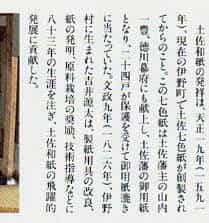 土佐和紙の発祥は、天正一九年（一五九一
年）、現在の伊野町で土佐七色紙が創製され
てからのこと。この七色紙は土佐藩主の山内
一豊、徳川幕府にも献上し、土佐藩の御用紙
となり、二十四戸が保護を受けて御用紙漉き
に当たっていた。文政九年（一八二六年）、伊野
村に生まれた吉井源太は、製紙用具の改良、
紙の発明、原料栽培の奨励、技術指導などに
八十三年の生涯を注ぎ、土佐和紙の飛躍的
発展に貢献した。